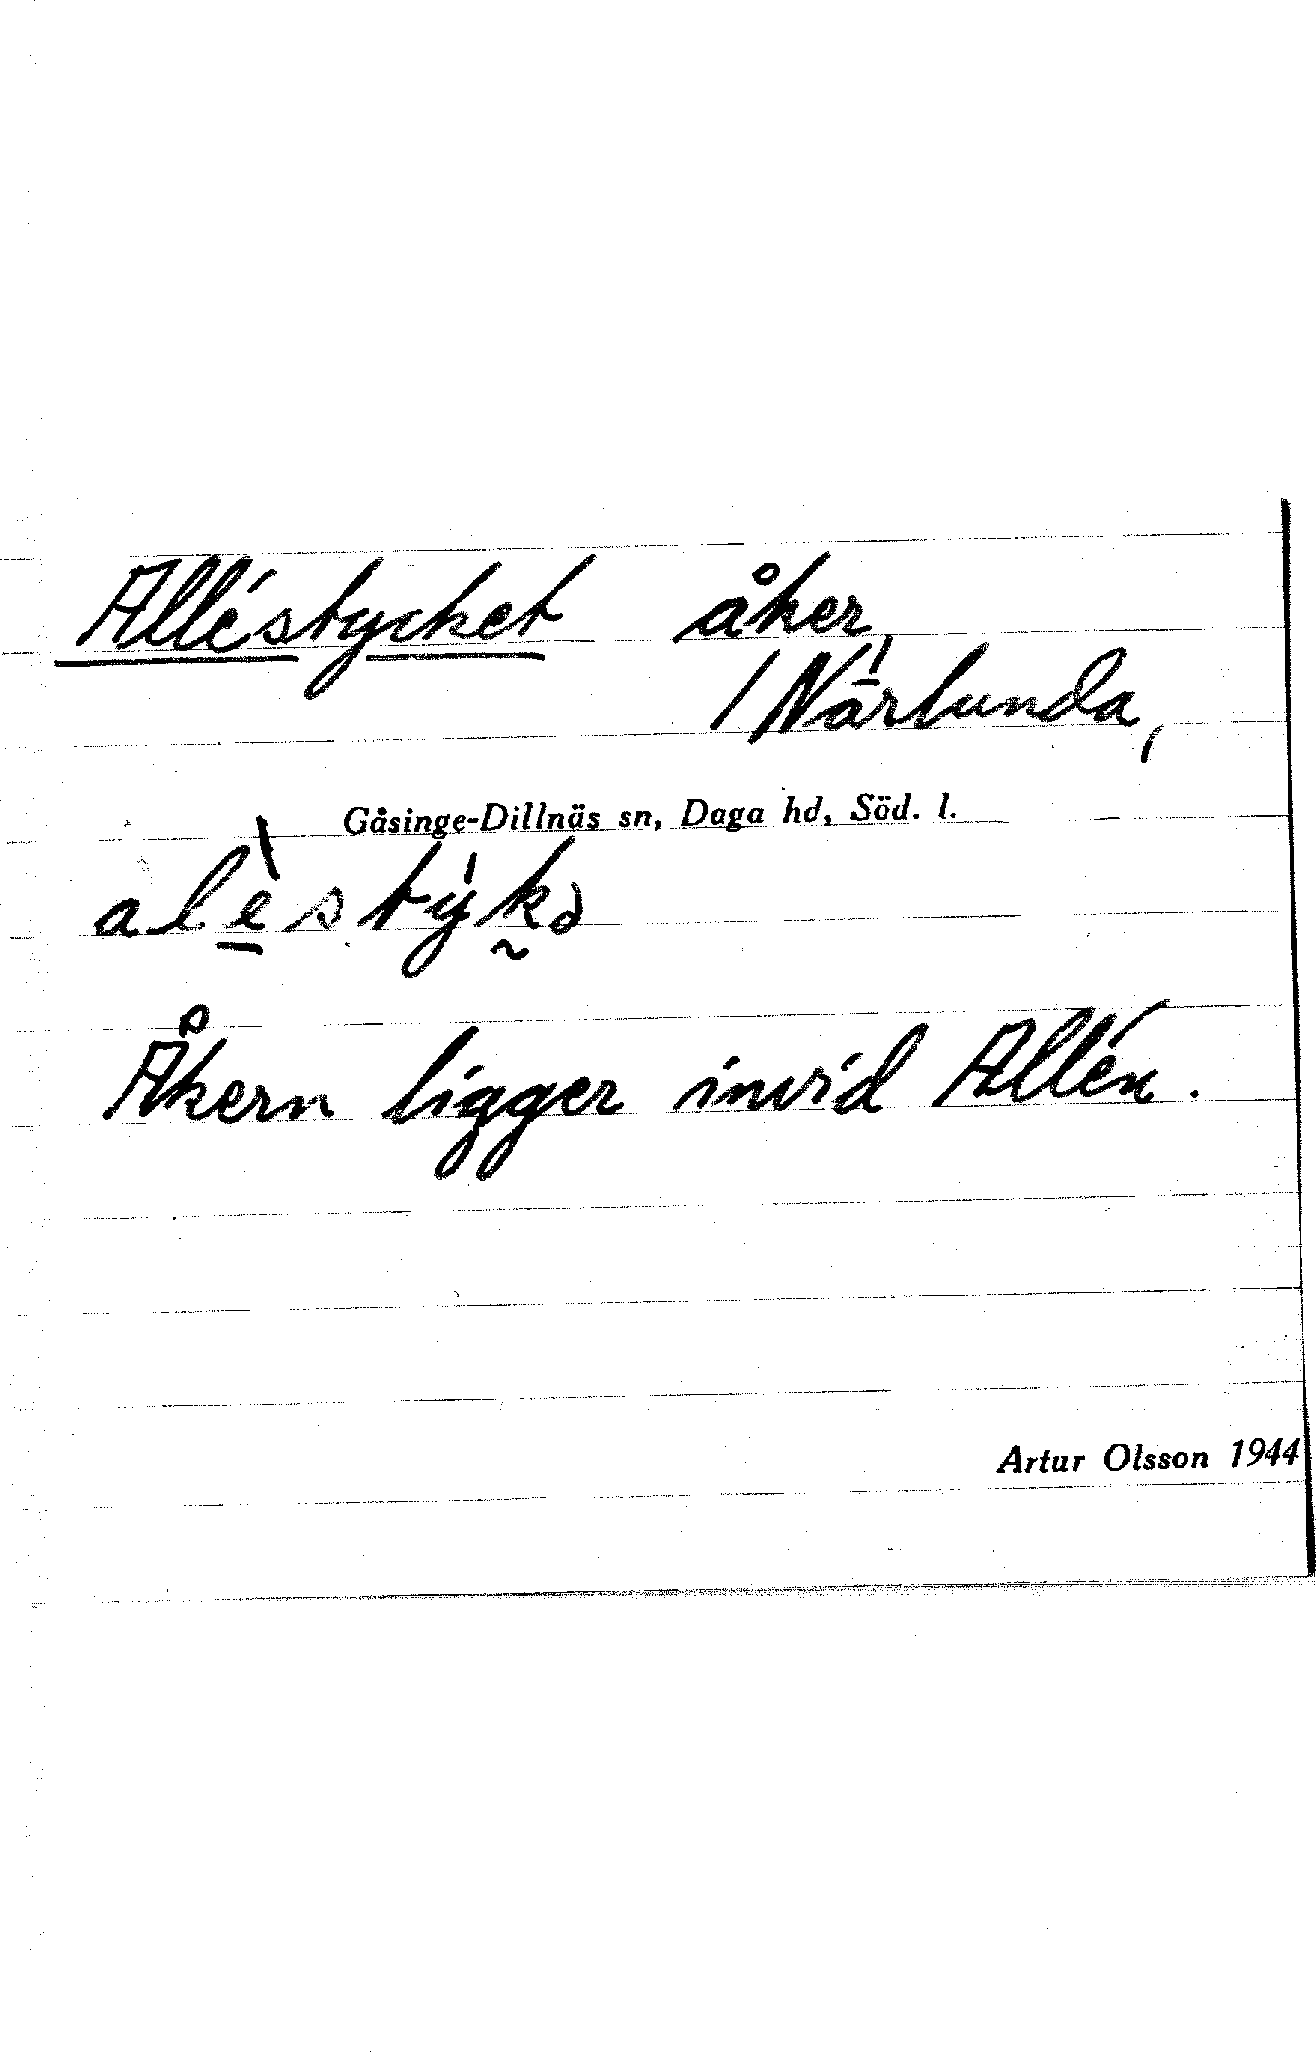 Alléstycket åker,
/Närlunda,
Gåsinge-Dillnäs sn, Daga hd, Söd. l.
alèstýkə
Åkern ligger invid Allén.
Artur Olsson 1944